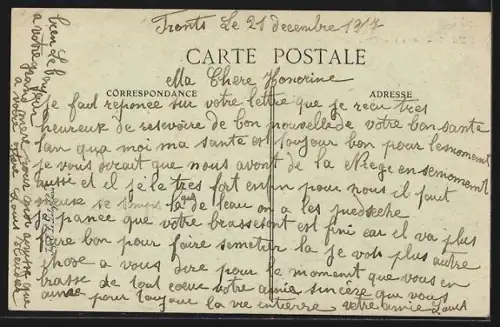 Fronts Le 21 decembre 1917
CARTE POSTALE
Ma Chere Honorine
CORRESPONDANCE
ADRESSE
je fait reponce sur votre lettre que je recu tres
heureux de resevoire de bon nouvelle de votre bon sante
tan qua moi ma sante est toujour bon pour le moment
je vous dirait que nous avont de la Niege en se moment
aussi et il jele tres fort enfin pour nous il faut
mieuse se temps la que de leau on a les pied seche
esperance que votre brasse sont est fini car il va plus
faire bon pour faire se metier la je vois plus autre
chose a vous dire pour le moment que vous en
brasse de tout coeur votre amie sincère que vous
aimée pour toujour la vie entierre votre amie Louis
bien Le bonjour
a votre grand mere pour mon ainsi que
a votre